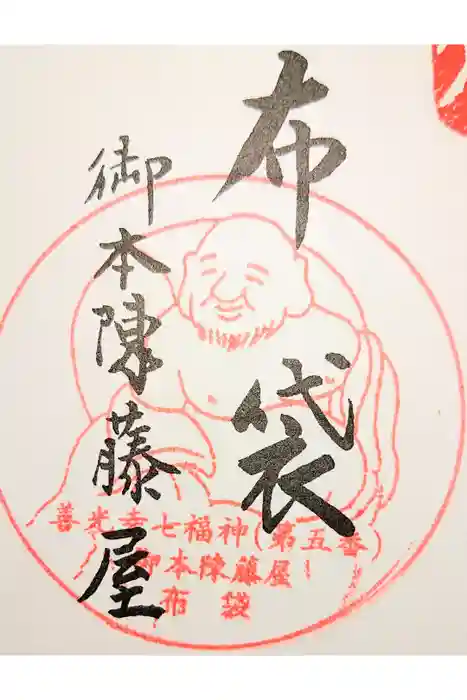 布袋
御本陳藤屋
善光寺七福神(第五番)
御本陳藤屋
布袋